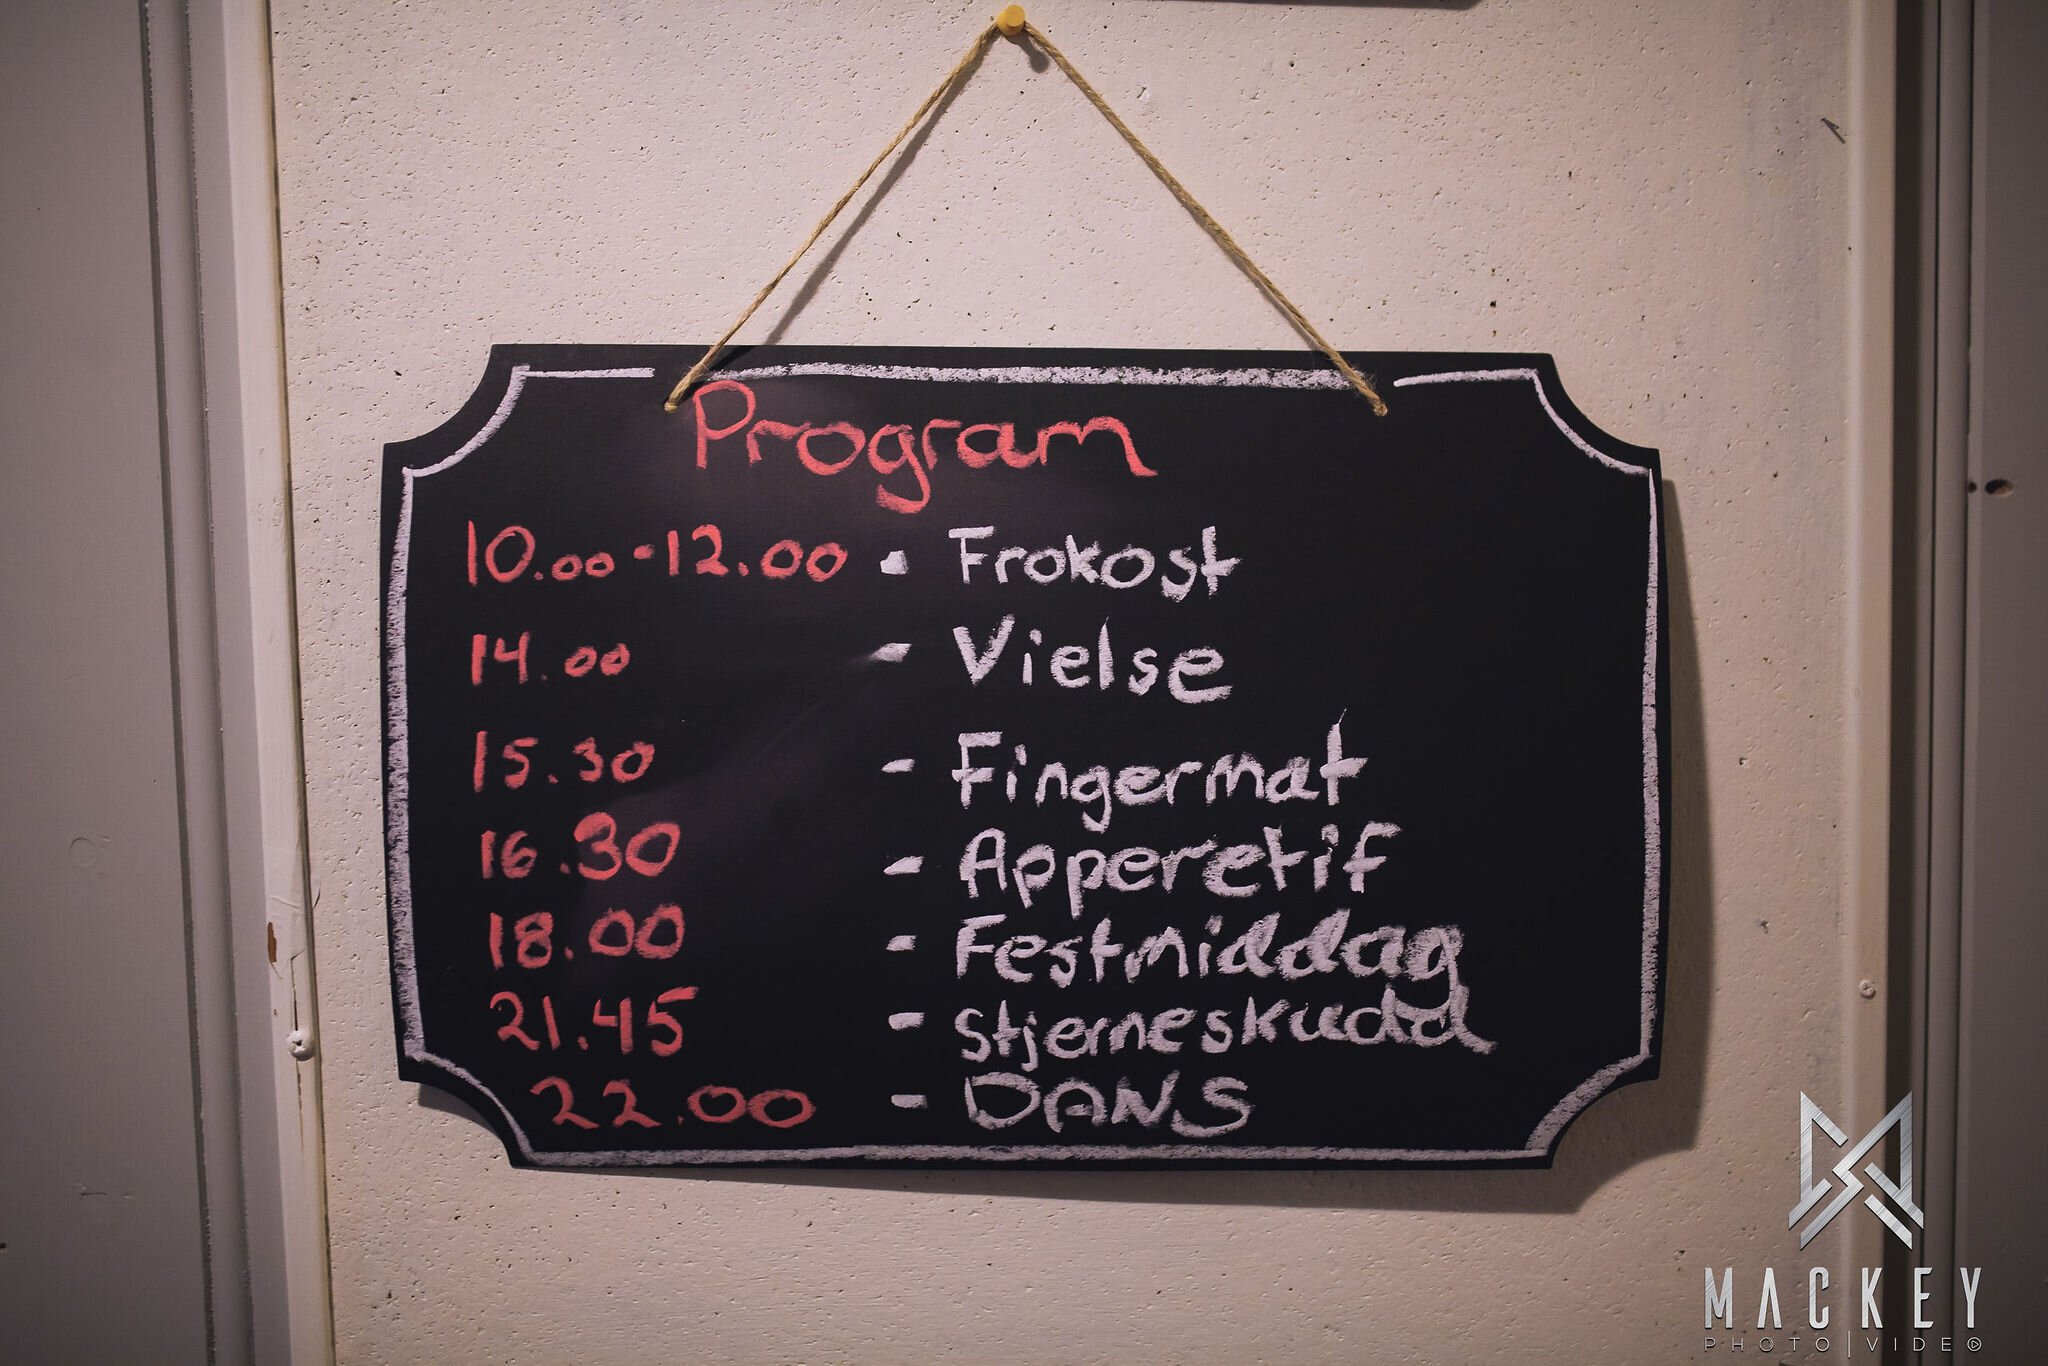 Program
10.00-12.00 - Frokost
14.00 - Vielse
15.30 - Fingermat
16.30 - Apperetif
18.00 - Festmiddag
21.45 - Stjerneskudd
22.00 - DANS
MACKEY
PHOTO|VIDEO